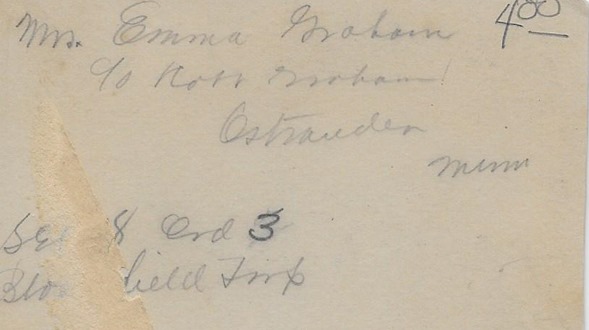 Mrs. Emma Graham 4.00
c/o Robt Graham
Ostrander
Minn
8 Ord 3
field Twp